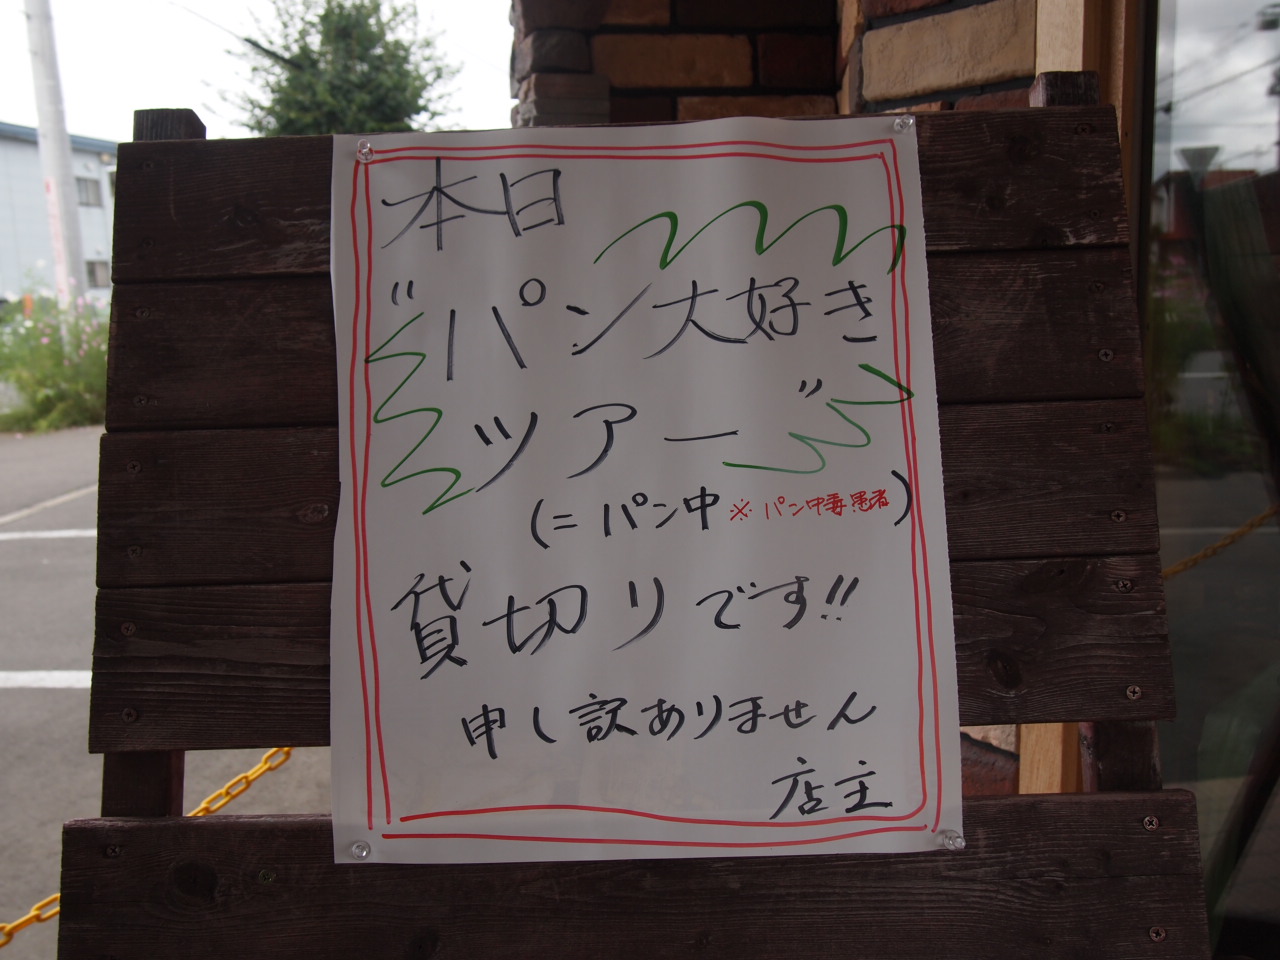 本日
"パン大好き
ツアー"
(=パン中 ※パン中毒患者)
貸切りです!!
申し訳ありません
店主